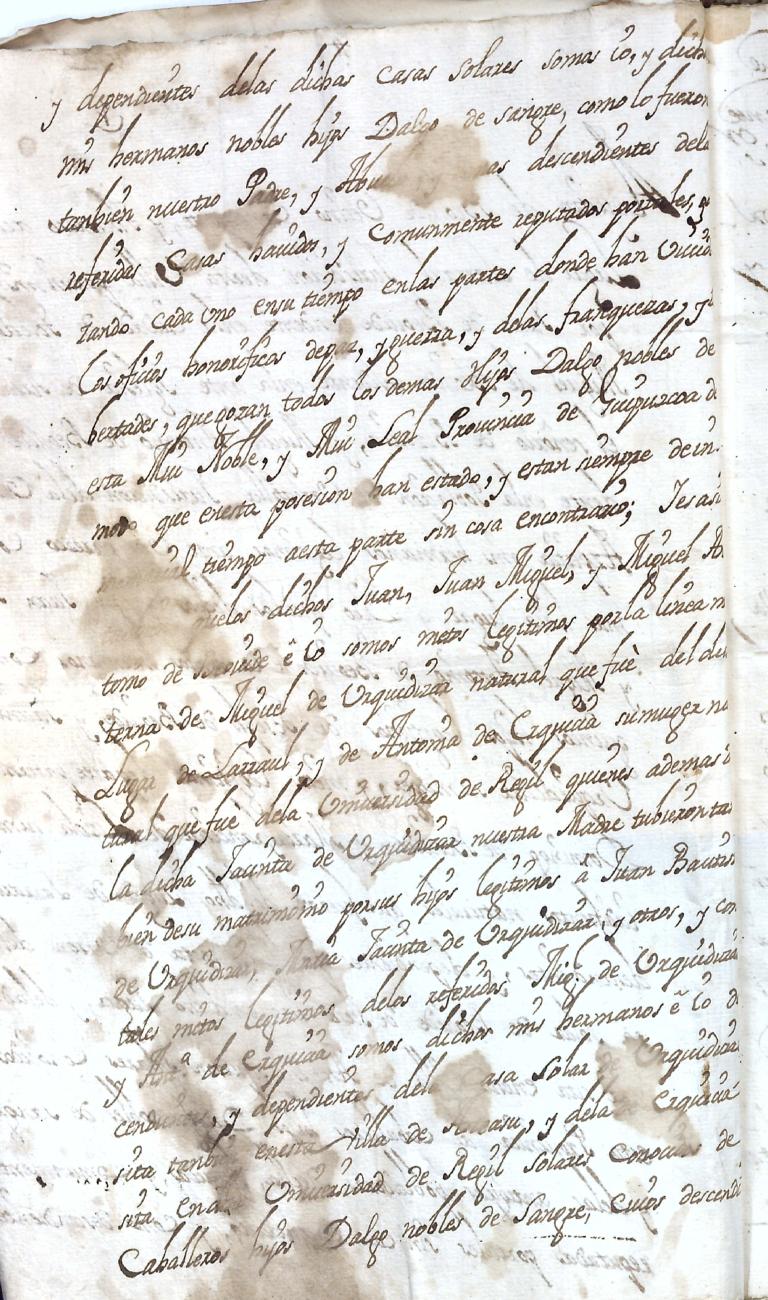 y dependientes delas dichas Casas Solares somos Io, y dicho
mis hermanos nobles hijos Dalgo de sangre, como lo fueron
tanbien nuestro Padre, y as descendientes dela
referidas Casas havidos, y Comunmente reputados portales, y
zando cada Uno ensu tiempo enlas partes donde han Vivid
los oficios honorificos depaz, y guerra, y delas franquezas, y
bertades, que gozan todos los demas Hijos Dalgo nobles de
esta Mui Noble, y Mui Leal Provinzia de Guipuzcoa d
modo que enesta posesion han estado, y estan siempre dein
tiempo aesta parte sin cosa encontrario; Iesasi
quelos dichos Juan, Juan Miguel, y Miguel An
tonio de ê Io somos nietos legitimos porla linea m
terna de Miguel de Urquidizar natural que fuè del dic
Lugar de Larraul, y de Antonia de Erquicia sumuger na
tural que fue dela Universidad de Regil quienes ademas d
la dicha Jacinta de Urquidizar nuestra Madre tubieron ta
bien desu matrimonio porsus hijos legitimos à Juan Bautis
de Urquidizar, Maria Jacinta de Urquidizar, y otros, y con
tales nietos legitimos delos referidos Mig.l de Urquidizar
y Ant.a de Erquicia somos dichos mis hermanos ê Io d
cendientes, y dependientes dela asa Solar de Urquidizar
sita tanbi enesta Villa de , y dela Erquicia
sita enla Universidad de Regil Solares Conocidos de
Caballeros hijos Dalgo nobles de Sangre, Cuios descendi